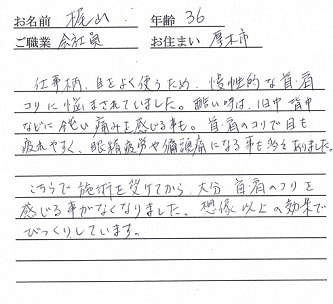 お名前 梶山 年齢 36
ご職業 会社員 お住まい 厚木市
仕事柄、目をよく使うため、慢性的な首・肩
コリに悩まされていました。酷い時は、1日中 背中
などに鈍い痛みを感じる事も。首・肩のコリで目も
疲れやすく、眼精疲労や偏頭痛になる事も多々ありました。
こちらで施術を受けてから、大分 首・肩のコリを
感じる事がなくなりました。想像以上の効果で
びっくりしています。